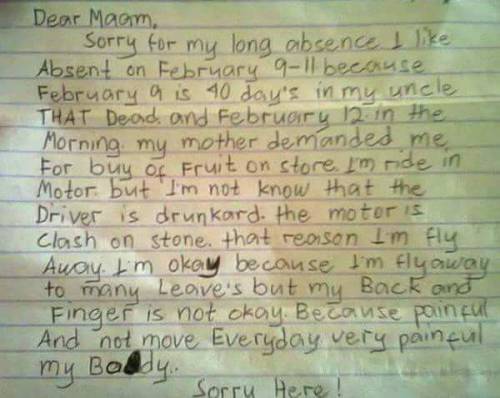 Dear Maam,
Sorry for my long absence I like
Absent on February 9-11 because
February 9 is 40 day's in my uncle
THAT Dead. and February 12 in the
Morning. my mother demanded me
For buy of Fruit on store. I'm ride in
Motor. but I'm not know that the
Driver is drunkard. the motor is
Clash on stone. that reason I'm fly
Away. I'm okay because I'm flyaway
to many Leave's but my Back and
Finger is not okay. Because painful
And not move Everyday very painful
my Body..
Sorry Here!